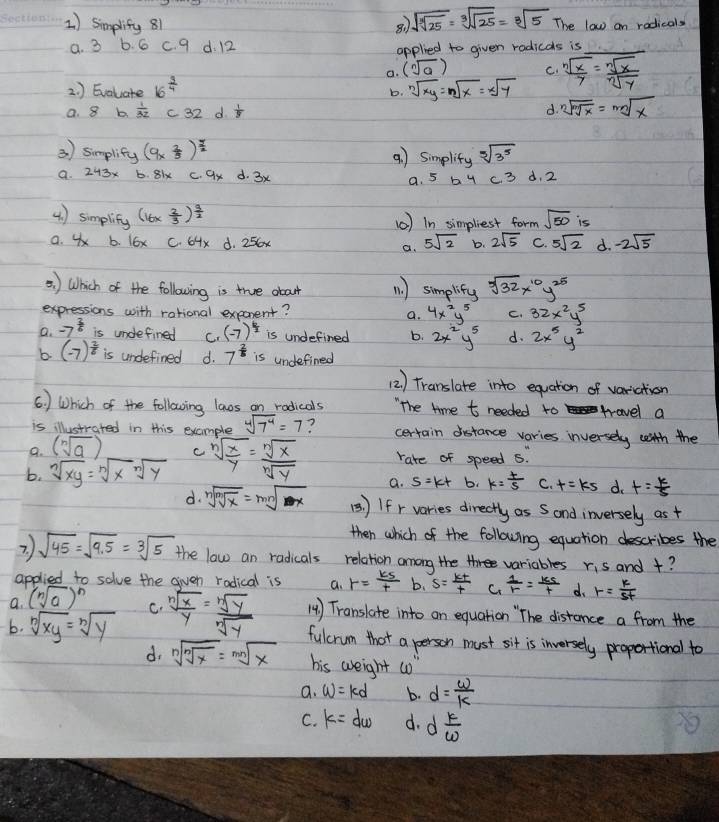 Section:
1.) Simplify 81
a. 3 b. 6 c. 9 d. 12
2.) Evaluate 16^(3/4)
a. 8 b. 1/32 c 32 d. 1/8
3.) Simplify (9x 2/3)^(3/2)
a. 243x b. 81x c. 9x d. 3x
4.) Simplify (16x 2/3)^(3/2)
a. 4x b. 16x c. 64x d. 256x
5.) Which of the following is true about
expressions with rational exponent?
a. -7 is undefined c. (-7) is undefined
b. (-7) is undefined d. 7 is undefined
6.) Which of the following laws on radicals
is illustrated in this example ⁴√7⁴ = 7?
a. (ⁿ√a) c ⁿ√x/y = ⁿ√x/ⁿ√y
b. ⁿ√xy = ⁿ√x ⁿ√y
d. ⁿ√ᵐ√x = mn√x
7.) √45 = √9.5 = 3√5 the law an radicals
applied to solve the given radical is
a. (ⁿ√a)ⁿ c. ⁿ√x/y = ⁿ√y/ⁿ√y
b. ⁿ√xy = ⁿ√y
d. ⁿ√ⁿ√x = mn√x
8.) √³√25 = ³√√25 = ³√5 The law on radicals
applied to given radicals is
a. (ⁿ√a) c. ⁿ√x/y = ⁿ√x/ⁿ√y
b. ⁿ√xy = ⁿ√x = x√y
d. ⁿ√ᵐ√x = mn√x
9.) Simplify ⁵√3⁵
a. 5 b 4 c. 3 d. 2
10) In simpliest form √50 is
a. 5√2 b. 2√5 c. 5√2 d. -2√5
11.) Simplify ⁵√32x¹⁰y²⁵
a. 4x²y⁵ c. 32x²y⁵
b. 2x²y⁵ d. 2x⁵y²
12.) Translate into equation of variation
"The time t needed to travel a
certain distance varies inversely with the
rate of speed s."
a. s=kt b. k=t/s c. t=ks d. t=k/s
13.) If r varies directly as s and inversely as t
then which of the following equation describes the
relation among the three variables r, s and t?
a. r= ks/t b. s= kt/r c. 1/r = ks/t d. r= k/st
14.) Translate into an equation "The distance a from the
fulcrum that a person must sit is inversely proportional to
his weight w"
a. w=kd b. d= w/k
c. k=dw d. d k/w